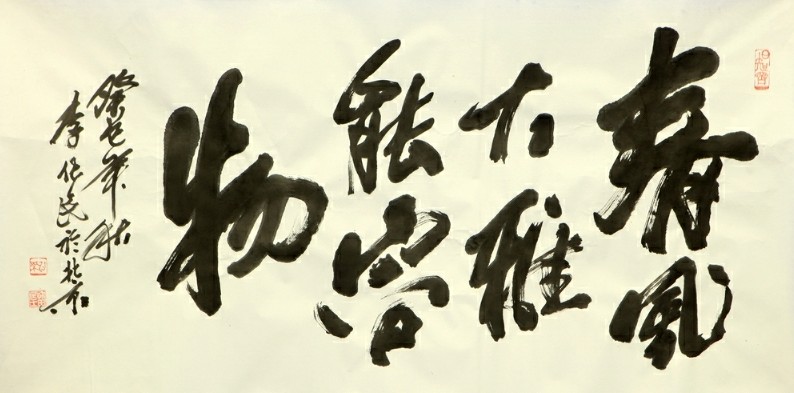 春風
大雅
能容
物
癸巳年秋
李民於北京